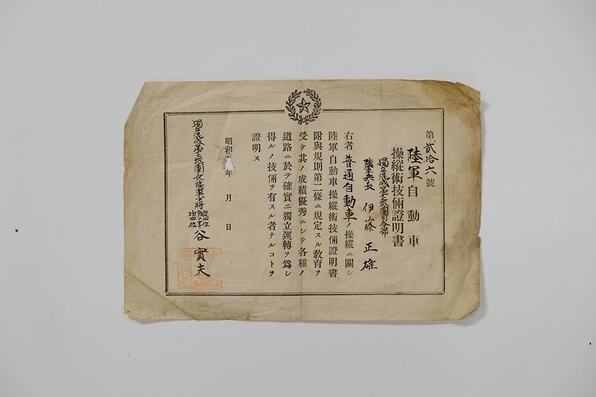 第貳拾六號
陸軍自動車
操縱術技倆證明書
獨立混成第 旅團司令部
陸軍兵長 伊藤正雄
右者普通自動車ノ操縱ニ關シ
陸軍自動車操縱術技倆證明書
附與規則第二條ニ規定スル教育ヲ
受ケ其ノ成績優秀ニシテ各種ノ
道路ニ於テ確實ニ獨立運轉ヲ爲シ
得ルノ技倆ヲ有スル者ナルコトヲ
證明ス
昭和 年 月 日
獨立混成第 旅團長陸軍少將 谷實夫